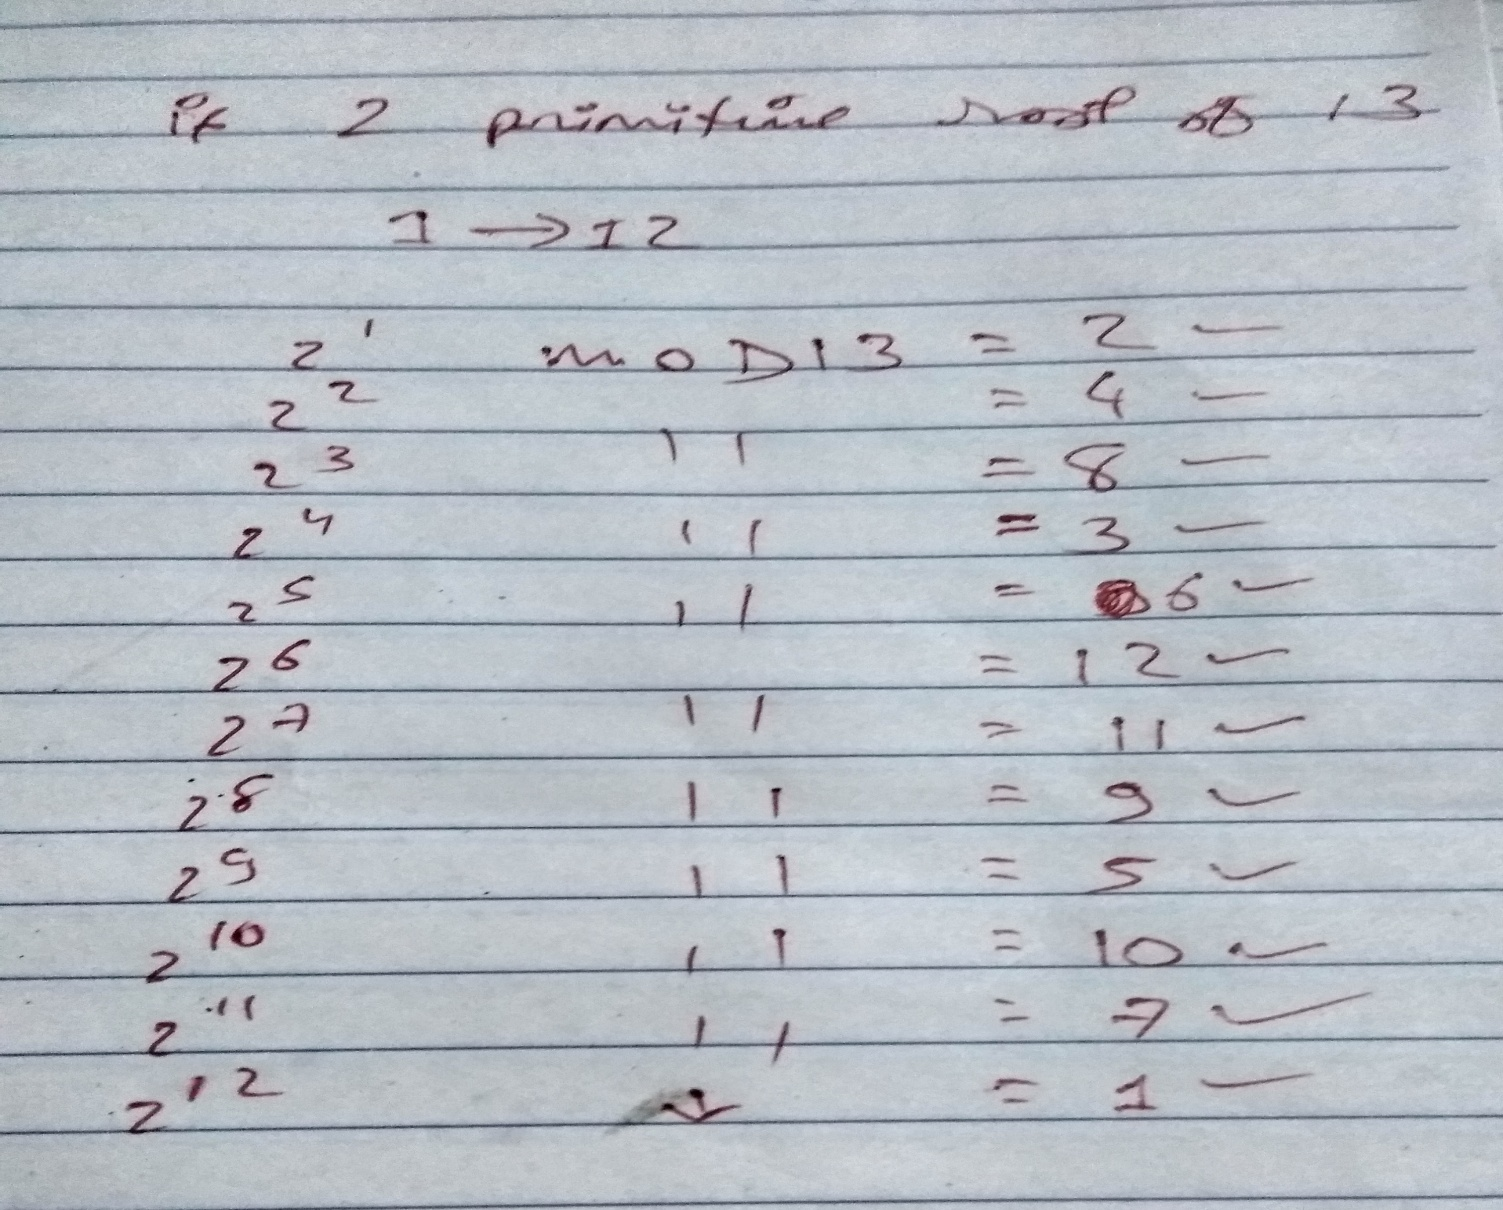 if 2 primitive root of 13
1 → 12
2¹ MOD13 = 2 —
2² = 4 —
2³ 11 = 8 —
2⁴ 11 = 3 —
2⁵ 11 = 6 —
2⁶ = 12 —
2⁷ 11 = 11 —
2⁸ 11 = 9 —
2⁹ 11 = 5 —
2¹⁰ 11 = 10 —
2¹¹ 11 = 7 —
2¹² ↓ = 1 —